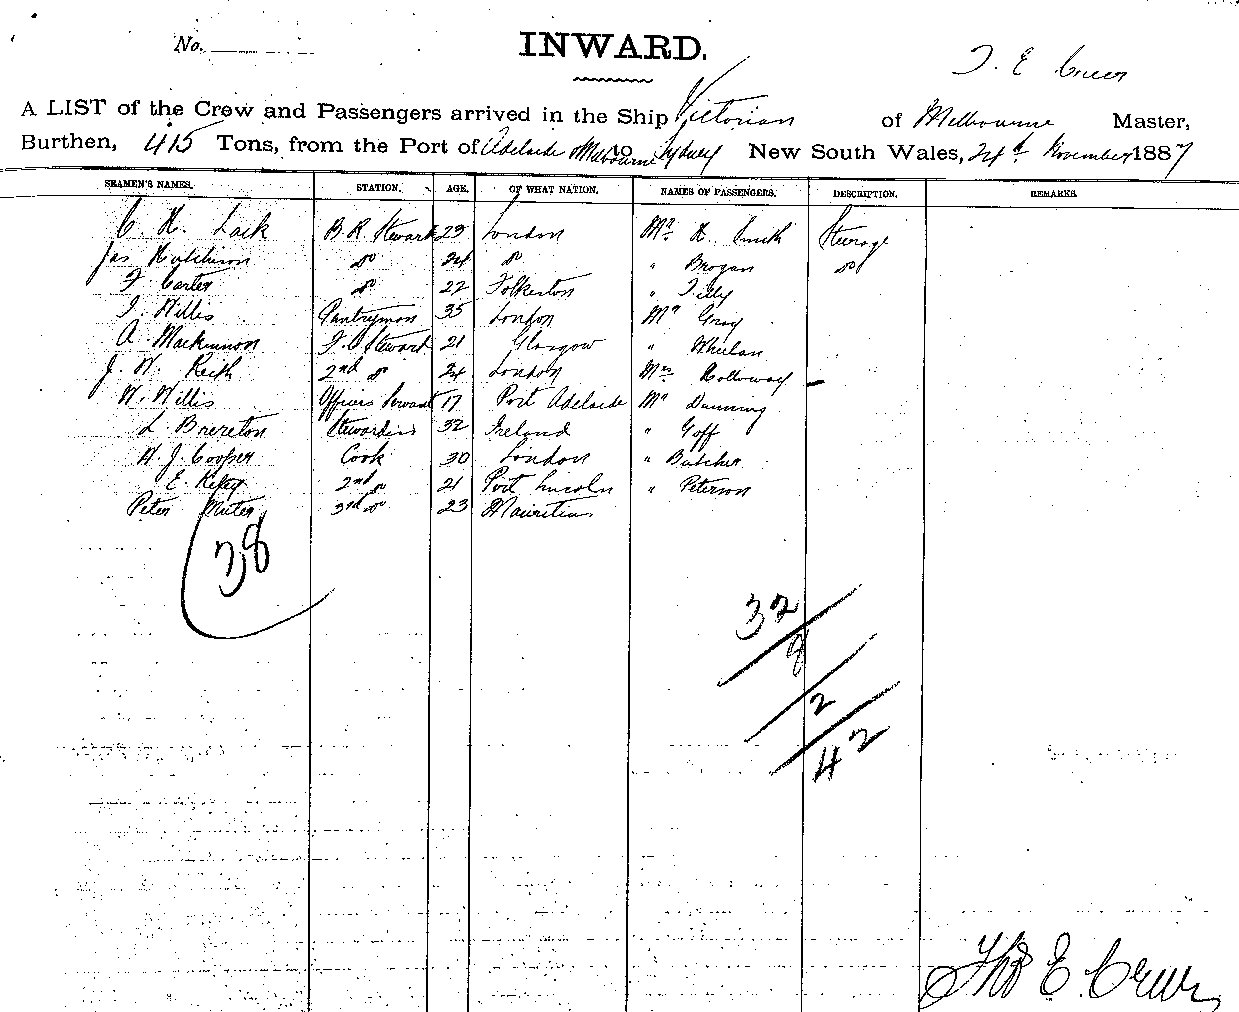 No.
INWARD.
T. E. Creer
A LIST of the Crew and Passengers arrived in the Ship Victorian of Melbourne Master,
Burthen, 415 Tons, from the Port of Adelaide Melbourne to Sydney New South Wales, 24th November 1887
SEAMEN'S NAMES. STATION. AGE. OF WHAT NATION. NAMES OF PASSENGERS. DESCRIPTION. REMARKS.
C. H. Lack B. R. Steward 23 London Mr. H. Smith Steerage
Jas Hutchison do 24 do " Brogan do
F. Carter do 22 Folkerton " Tilly
J. Willis Pantryman 35 London Mr Gray
A. Mackinnon F. C Steward 21 Glasgow " Whelan
J. W. Keith 2nd do 24 London Mrs Holloway
W. Willis Officers Servant 17 Port Adelaide Mr Dunning
L. Brereton Stewardess 32 Ireland " Goff
H. J. Cooper Cook 30 London " Butcher
E. 2nd do 21 Port Lincoln " Peterson
Peter 3rd do 23 Mauritius
38
32
8
2
42
Thos E. Creer